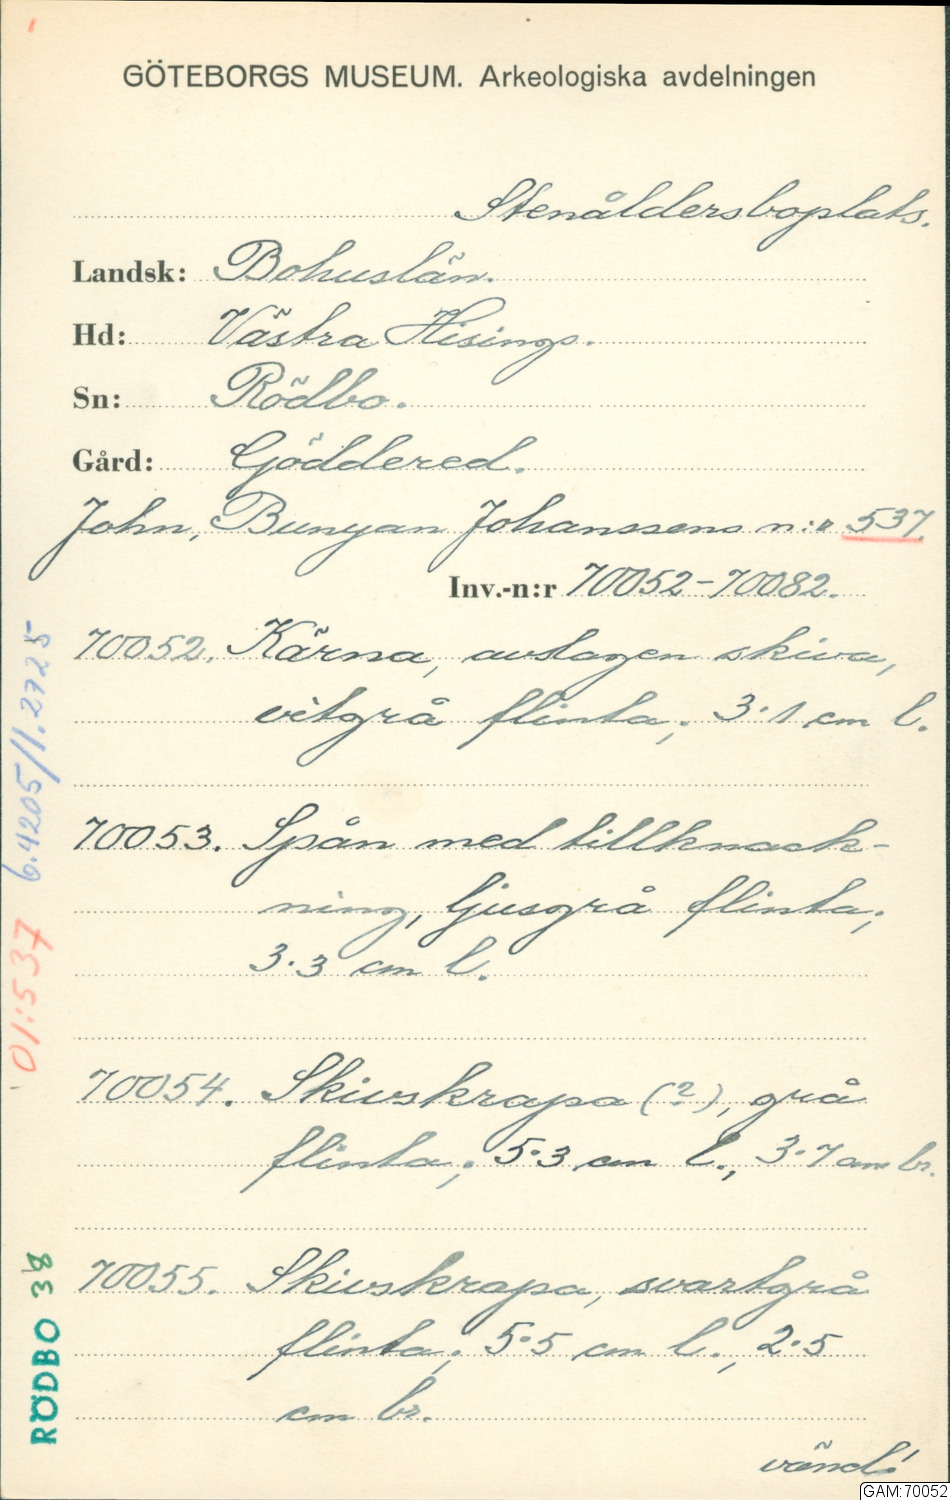 GÖTEBORGS MUSEUM. Arkeologiska avdelningen
Stenåldersboplats.
Landsk: Bohuslän.
Hd: Västra Hisings.
Sn: Rödbo.
Gård: Göddered.
John, Bunyan Johanssens n:r 537.
Inv.-n:r 70052-70082.
70052. Kärna, avslagen skiva,
vitgrå flinta; 3·1 cm l.
70053. Spån med tillknack-
ning, ljusgrå flinta;
3·3 cm l.
70054. Skivskrapa (?), grå
flinta; 5·3 cm l., 3·7 cm br.
70055. Skivskrapa, svartgrå
flinta; 5·5 cm l., 2·5
cm br.
vänd!
01:537 6.4205/1.2725
RÖDBO 38
GAM:70052